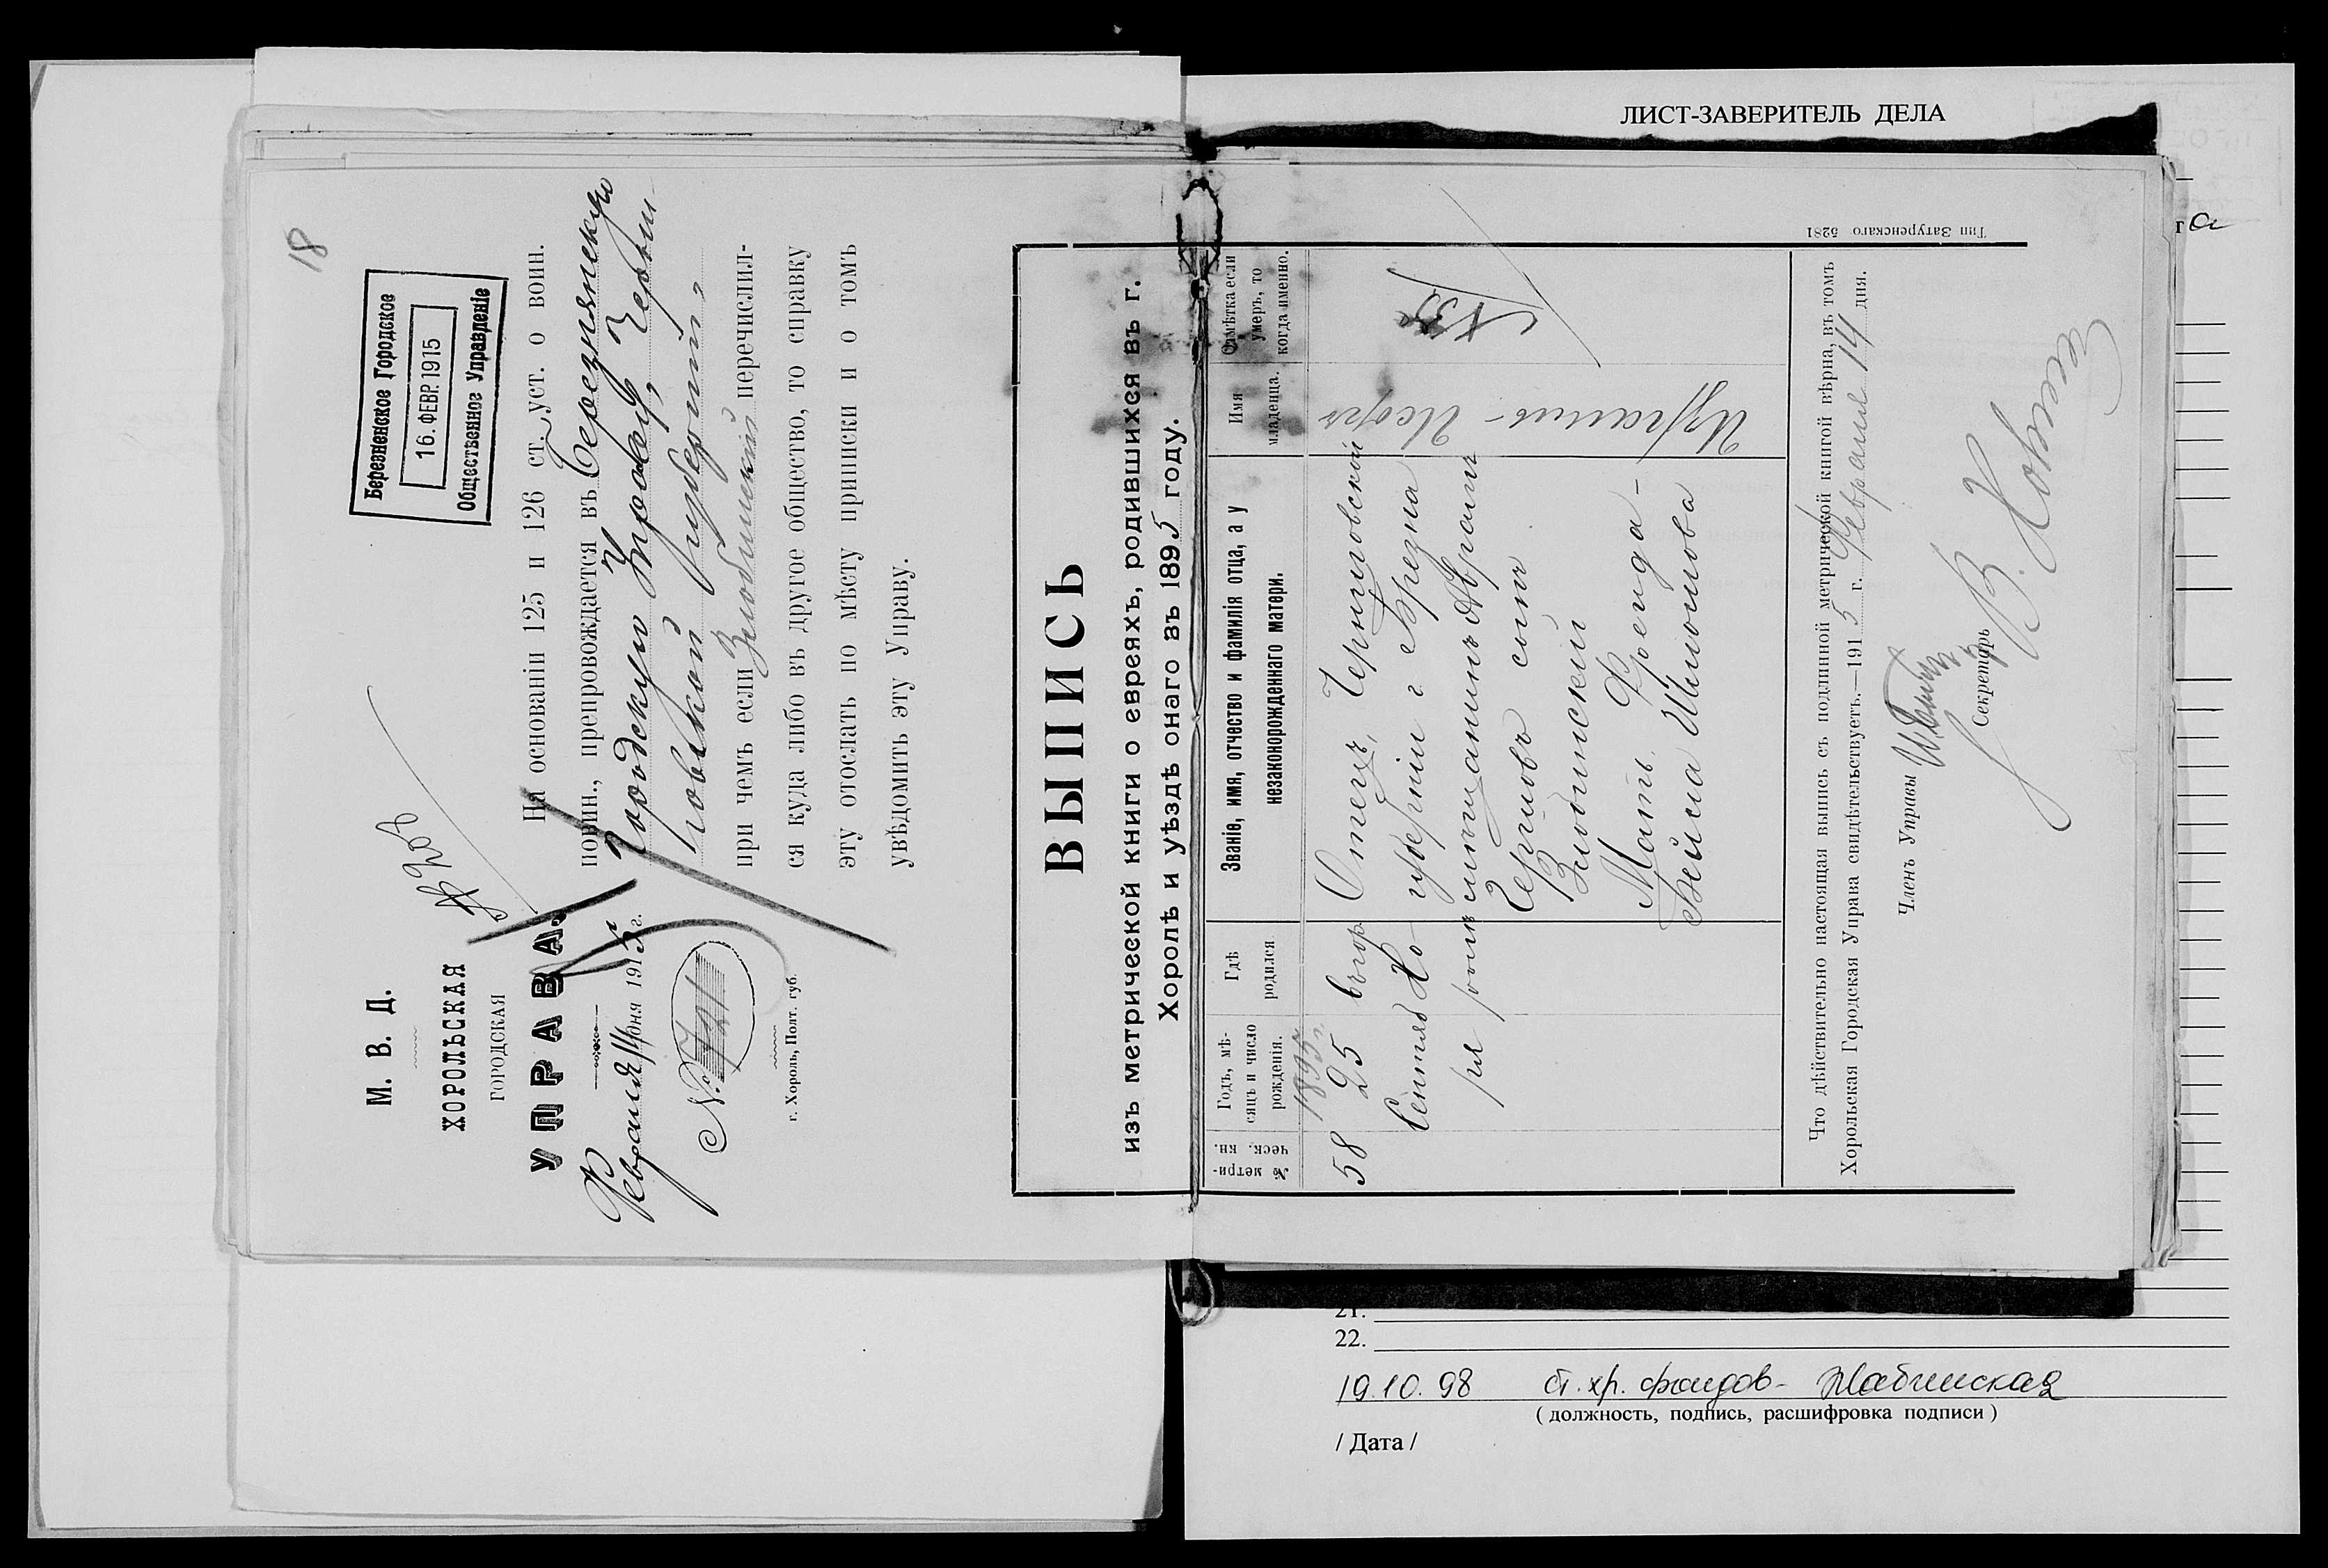 ЛИСТ-ЗАВЕРИТЕЛЬ ДЕЛА
18
Березненское Городское
16. ФЕВР. 1915
Общественное Управленiе
М. В. Д.
ХОРОЛЬСКАЯ
ГОРОДСКАЯ
УПРАВА.
Февраля 14 дня 1915 г.
№ 721
г. Хороль, Полт. губ.
На основанiи 125 и 126 ст. уст. о воин.
повин., препровождается въ Березнянскую
Городскую Управу, Черни-
говской губернiи,
при чемъ если Злобинскiй перечислил-
ся куда либо въ другое общество, то справку
эту отослать по мѣсту приписки и о томъ
увѣдомить эту Управу.
ВЫПИСЬ
изъ метрической книги о евреяхъ, родившихся въ г.
Хоролѣ и уѣздѣ онаго въ 1895 году.
№ метри-
ческ. кн.
Годъ, мѣ-
сяцъ и число
рожденiя.
Гдѣ
родился
Званiе, имя, отчество и фамилiя отца, а у
незаконорожденнаго матери.
Имя
младенца.
Отмѣтка если
умеръ, то
когда именно.
58
1895 г.
25
Сентяб
ря
въ гор.
Хо-
ролѣ
Отецъ, Черниговской
губернiи г. Березна
мѣщанинъ Абрамъ
сынъ
Злобинскiй
Мать Фрейда-
Бейла
Израиль-
Что дѣйствительно настоящая выпись съ подлинной метрической книгой вѣрна, въ томъ
Хорольская Городская Управа свидѣтельствуетъ.—1915 г. Февраля 14 дня.
Членъ Управы
Секретарь
Тип Затуренскаго 5281
21.
22.
19.10.98 ст. хр. фондов-
( должность, подпись, расшифровка подписи )
/ Дата /